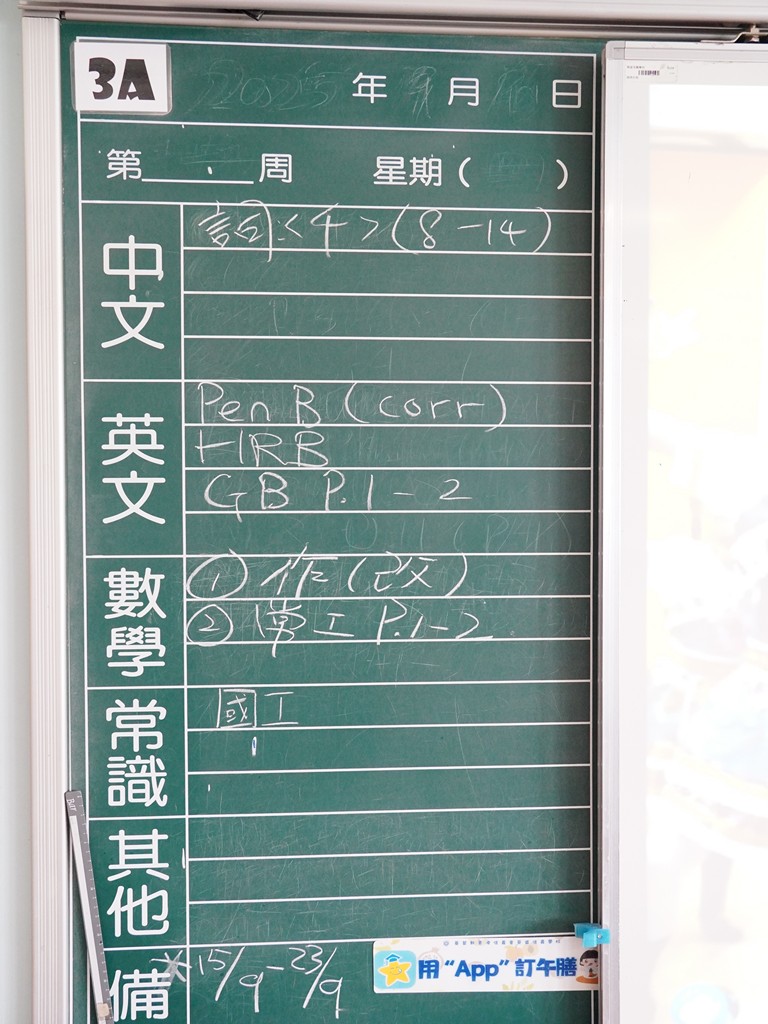 3A
年 月 日
第 周 星期 ( )
中文
詞<4>(8-14)
英文
Pen B (corr)
HRB
GB P.1-2
數學
① 作(改)
② 常工 P.1-2
常識
國工
其他
備
*15/9-23/9
用 "App" 訂午膳